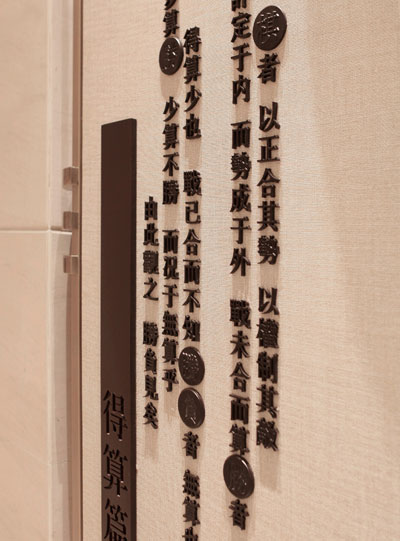 棋者 以正合其勢 以權制其敵
計定于內 而勢成于外 戰未合而算勝者
得算少也 戰已合而不知勝負者 無算也
多算勝 少算不勝 而況于無算乎
由此觀之 勝負見矣
得算篇